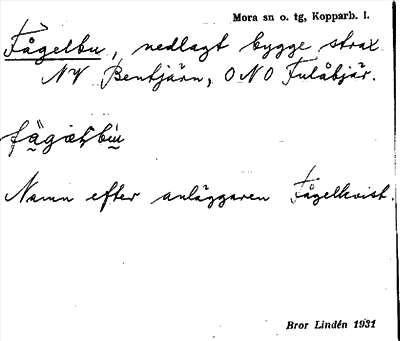 Mora sn o. tg, Kopparb. l.
Fågelbu, nedlagt bygge strax
NV Bentjärn, ONO Fulåbjär.
Namn efter anläggaren Fågelkvist.
Bror Lindén 1931